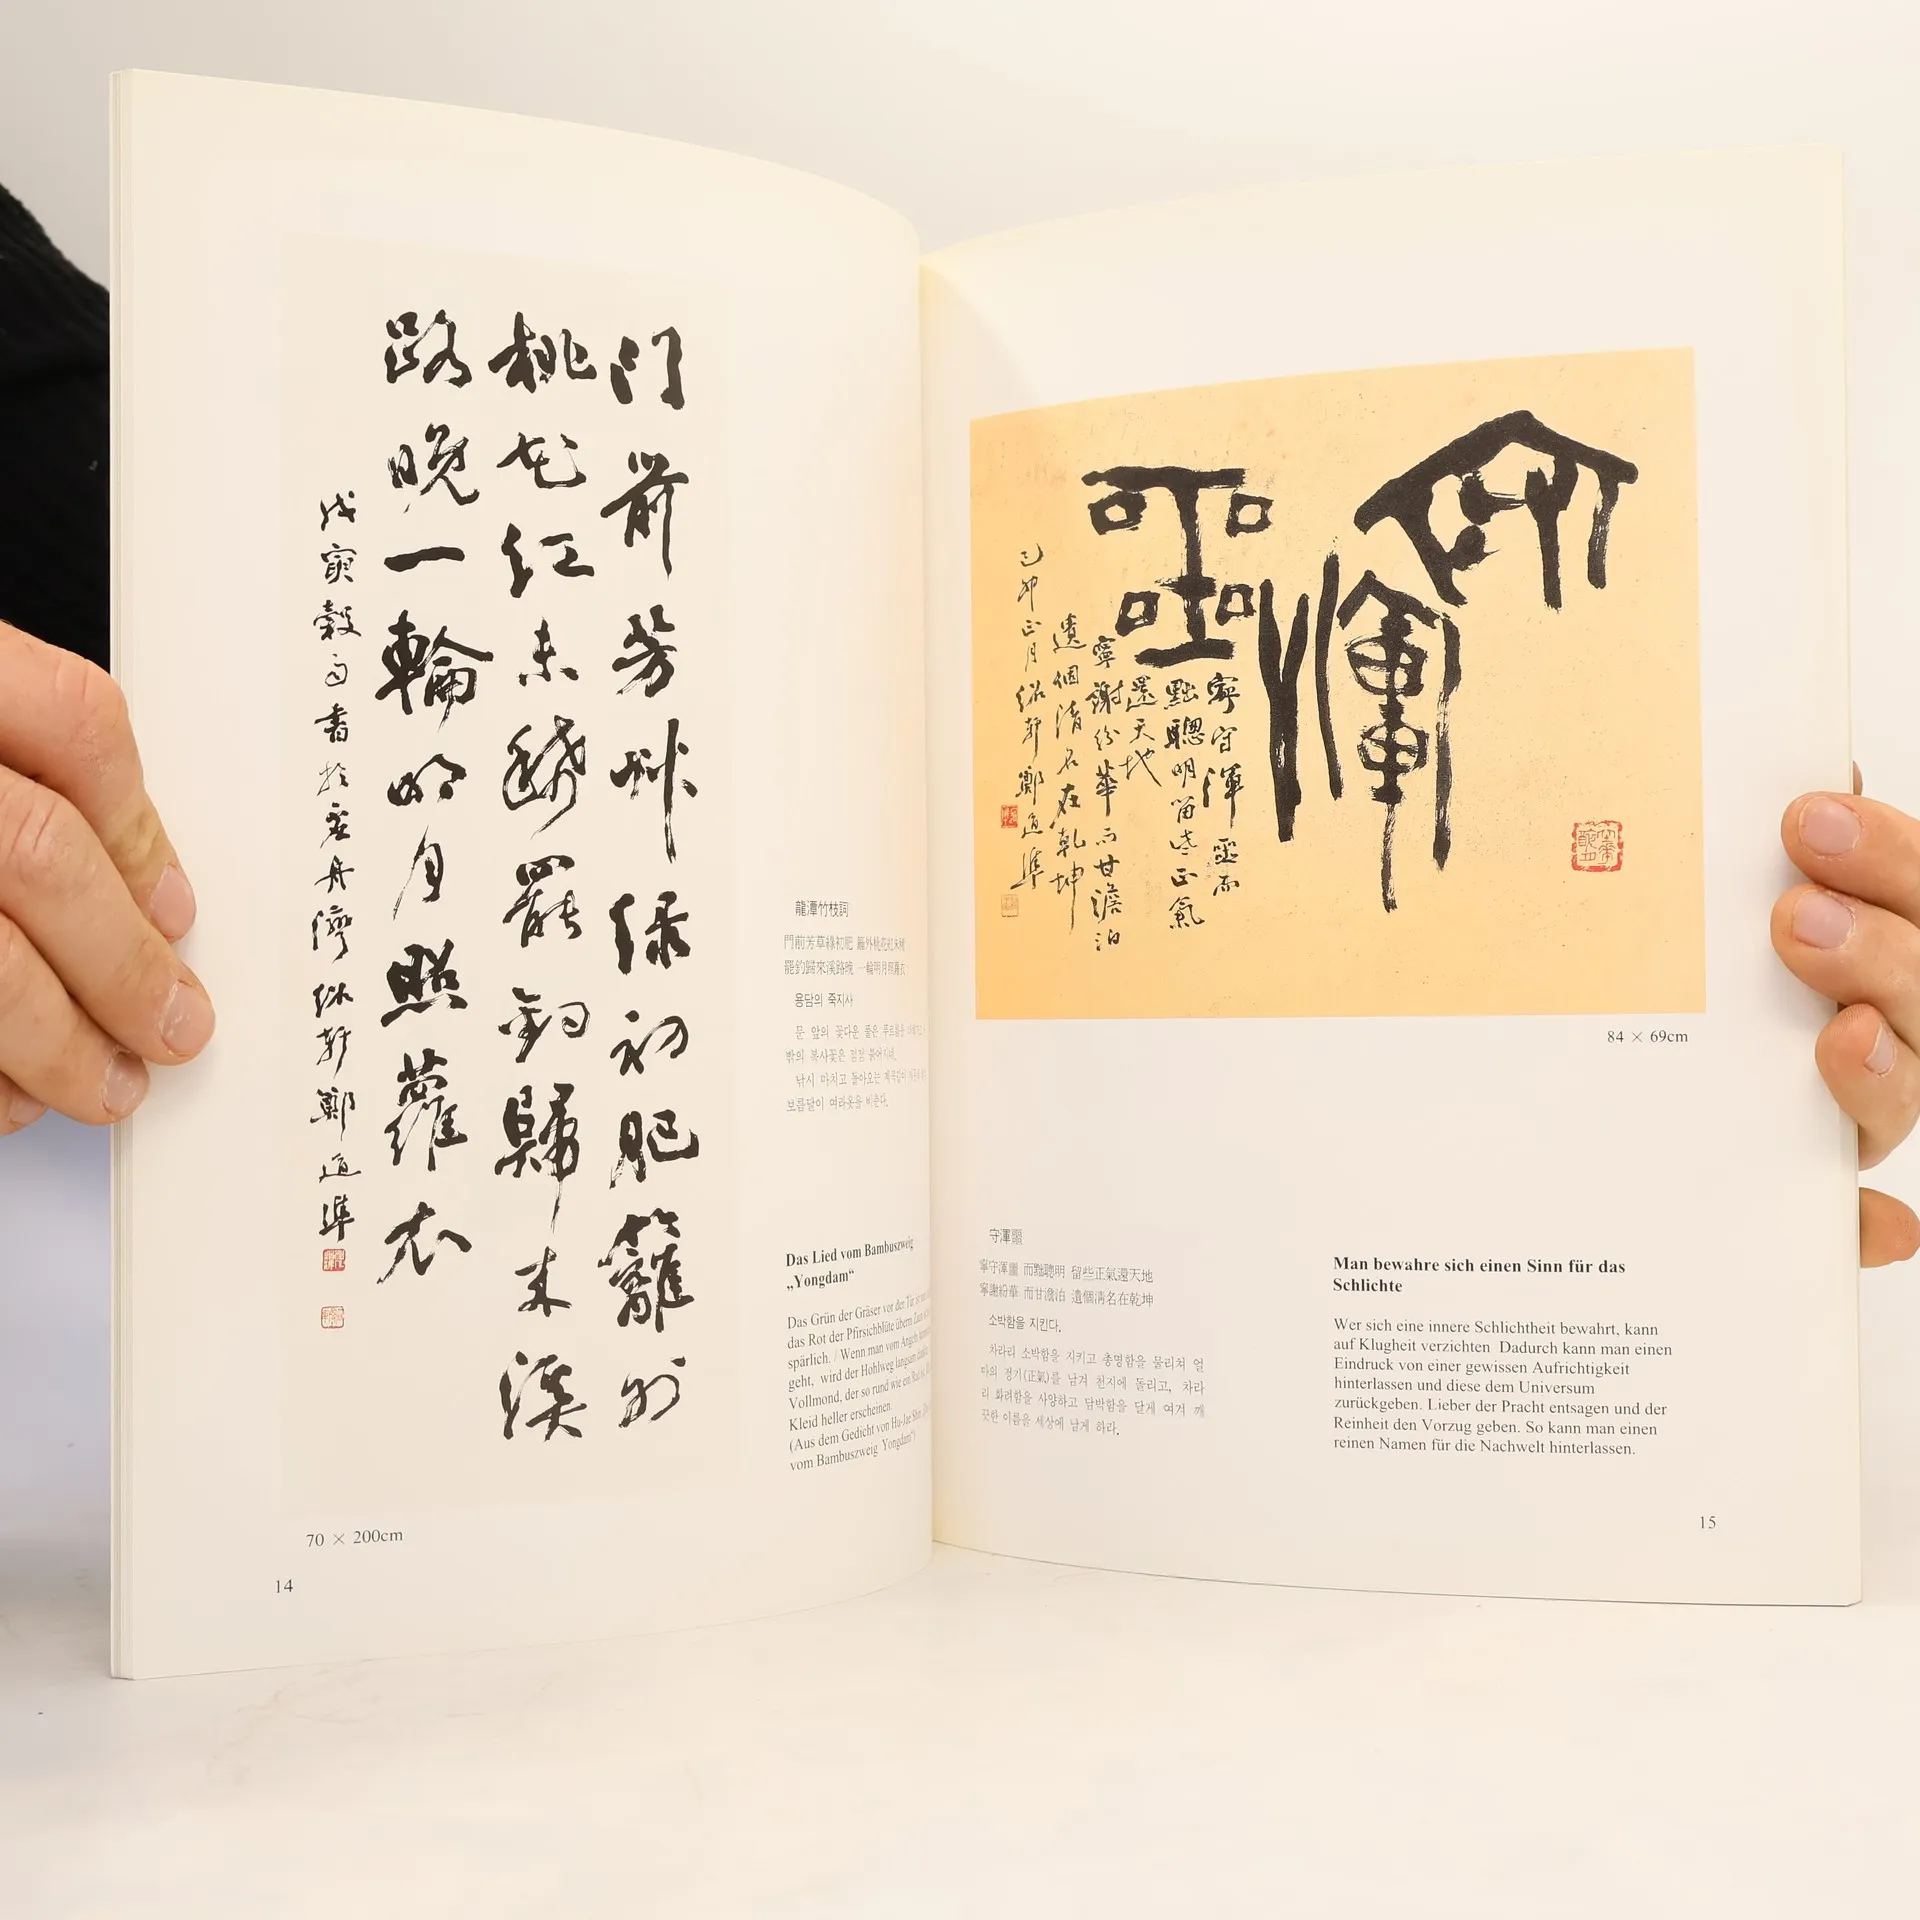 門前芳艸綠初肥籬外
桃花紅未稀罷釣歸來溪
路晚一輪明月照蘿衣
戊寅穀雨書於
鄭道準
龍潭竹枝詞
門前芳草綠初肥 籬外桃花紅未稀
罷釣歸來溪路晚 一輪明月照蘿衣
용담의 죽지사
문 앞의 꽃다운 풀은 푸르름을
밖의 복사꽃은 점점 붉어지네.
낚시 마치고 돌아오는 계곡길이
보름달이 여라옷을 비춘다.
Das Lied vom Bambuszweig
„Yongdam“
Das Grün der Gräser vor der Tür ist
das Rot der Pfirsichblüte überm Zaun
spärlich. / Wenn man vom Angeln
geht, wird der Hohlweg langsam
Vollmond, der so rund wie ein Rad
Kleid heller erscheinen.
(Aus dem Gedicht von Hu-Jae Shin
vom Bambuszweig Yongdam“)
70 × 200cm
14
守渾噩
寧守渾噩而
黜聰明留些正氣
還天地
寧謝紛華而甘澹泊
遺個清名在乾坤
己卯正月 鄭道準
84 × 69cm
守渾噩
寧守渾噩 而黜聰明 留些正氣還天地
寧謝紛華 而甘澹泊 遺個淸名在乾坤
소박함을 지킨다.
차라리 소박함을 지키고 총명함을 물리쳐 얼
마의 정기(正氣)를 남겨 천지에 돌리고, 차라
리 화려함을 사양하고 담박함을 달게 여겨 깨
끗한 이름을 세상에 남게 하라.
Man bewahre sich einen Sinn für das
Schlichte
Wer sich eine innere Schlichtheit bewahrt, kann
auf Klugheit verzichten Dadurch kann man einen
Eindruck von einer gewissen Aufrichtigkeit
hinterlassen und diese dem Universum
zurückgeben. Lieber der Pracht entsagen und der
Reinheit den Vorzug geben. So kann man einen
reinen Namen für die Nachwelt hinterlassen.
15